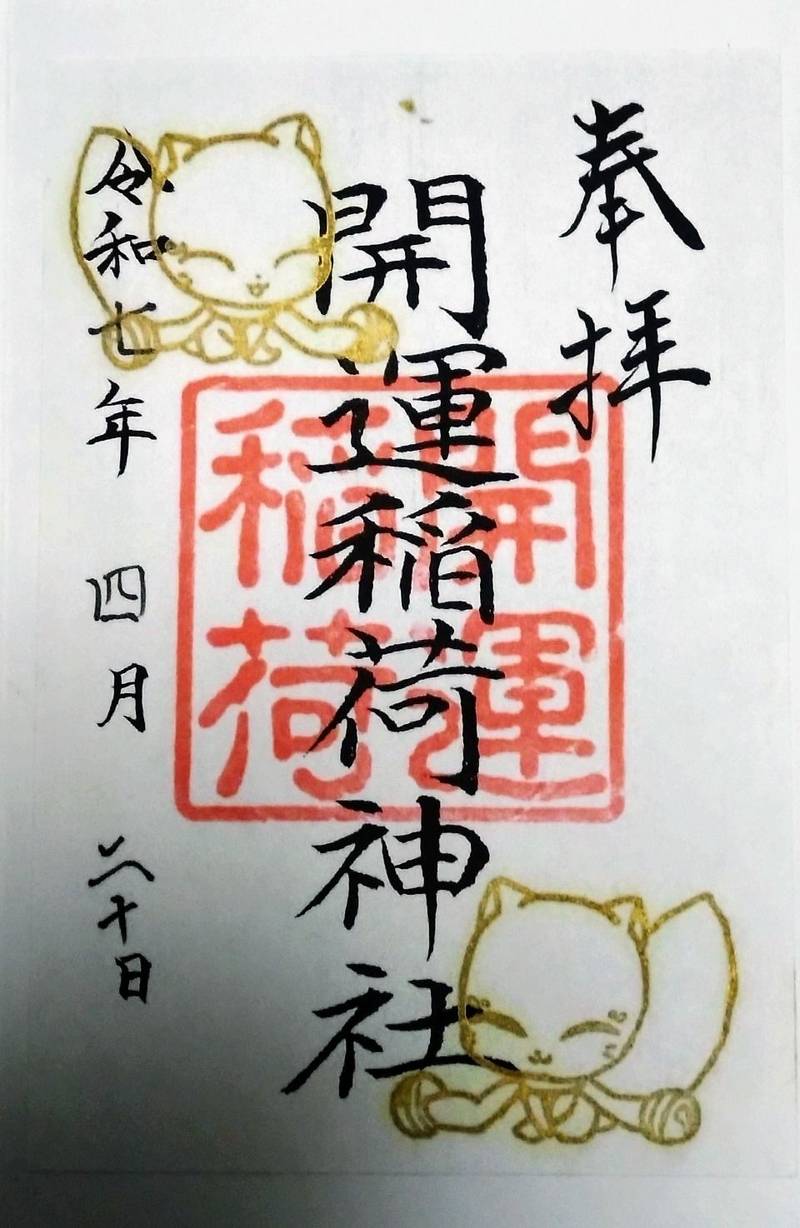 奉拝
開運稲荷神社
開運稲荷
令和七年 四月 二十日